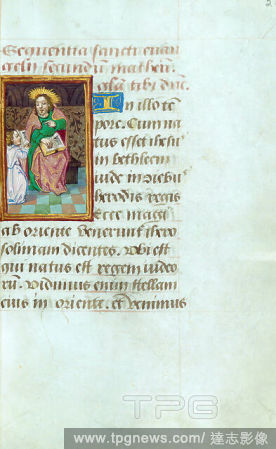 2
Sequentia sancti euan
gelij secundum matheum.
gl̃a tibi dñe.
In illo tẽ
pore. Cum na
tus esset ihesus
in bethleem
iude in diebus
herodis regis
Ecce magi
ab oriente venerunt ihero
solimam dicentes. Vbi est
qui natus est regem iudeo
rũ. Vidimus enim stellam
eius in oriente. et venimus
TPG
www.tpgnews.com/ 達志影像